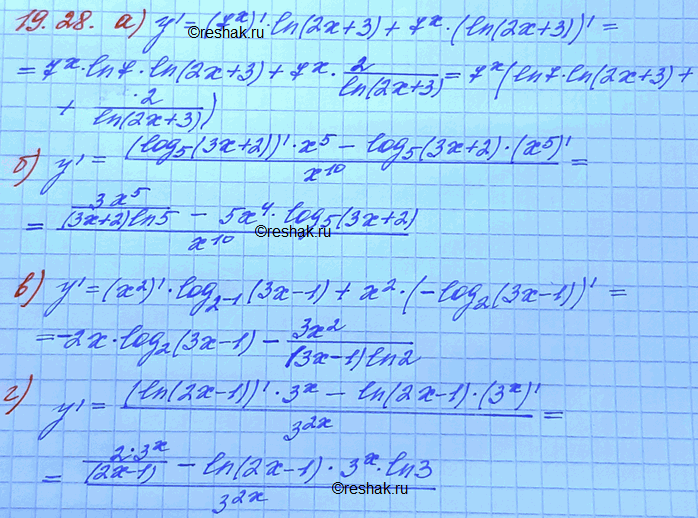 19.28. а) y' = (7^x)'·ln(2x+3) + 7^x·(ln(2x+3))' =
= 7^x·ln7·ln(2x+3) + 7^x·\frac{2}{ln(2x+3)} = 7^x(ln7·ln(2x+3) +
+ \frac{2}{ln(2x+3)})
©reshak.ru
б) y' = \frac{(log_5(3x+2))'·x^5 − log_5(3x+2)·(x^5)'}{x^{10}} =
= \frac{\frac{3x^5}{(3x+2)ln5} − 5x^4·log_5(3x+2)}{x^{10}}
©reshak.ru
в) y' = (x^2)'·log_{2^{-1}}(3x−1) + x^2·(−log_2(3x−1))' =
= −2x·log_2(3x−1) − \frac{3x^2}{(3x−1)ln2}
©reshak.ru
г) y' = \frac{(ln(2x−1))'·3^x − ln(2x−1)·(3^x)'}{3^{2x}} =
= \frac{\frac{2·3^x}{(2x−1)} − ln(2x−1)·3^x·ln3}{3^{2x}}
©reshak.ru